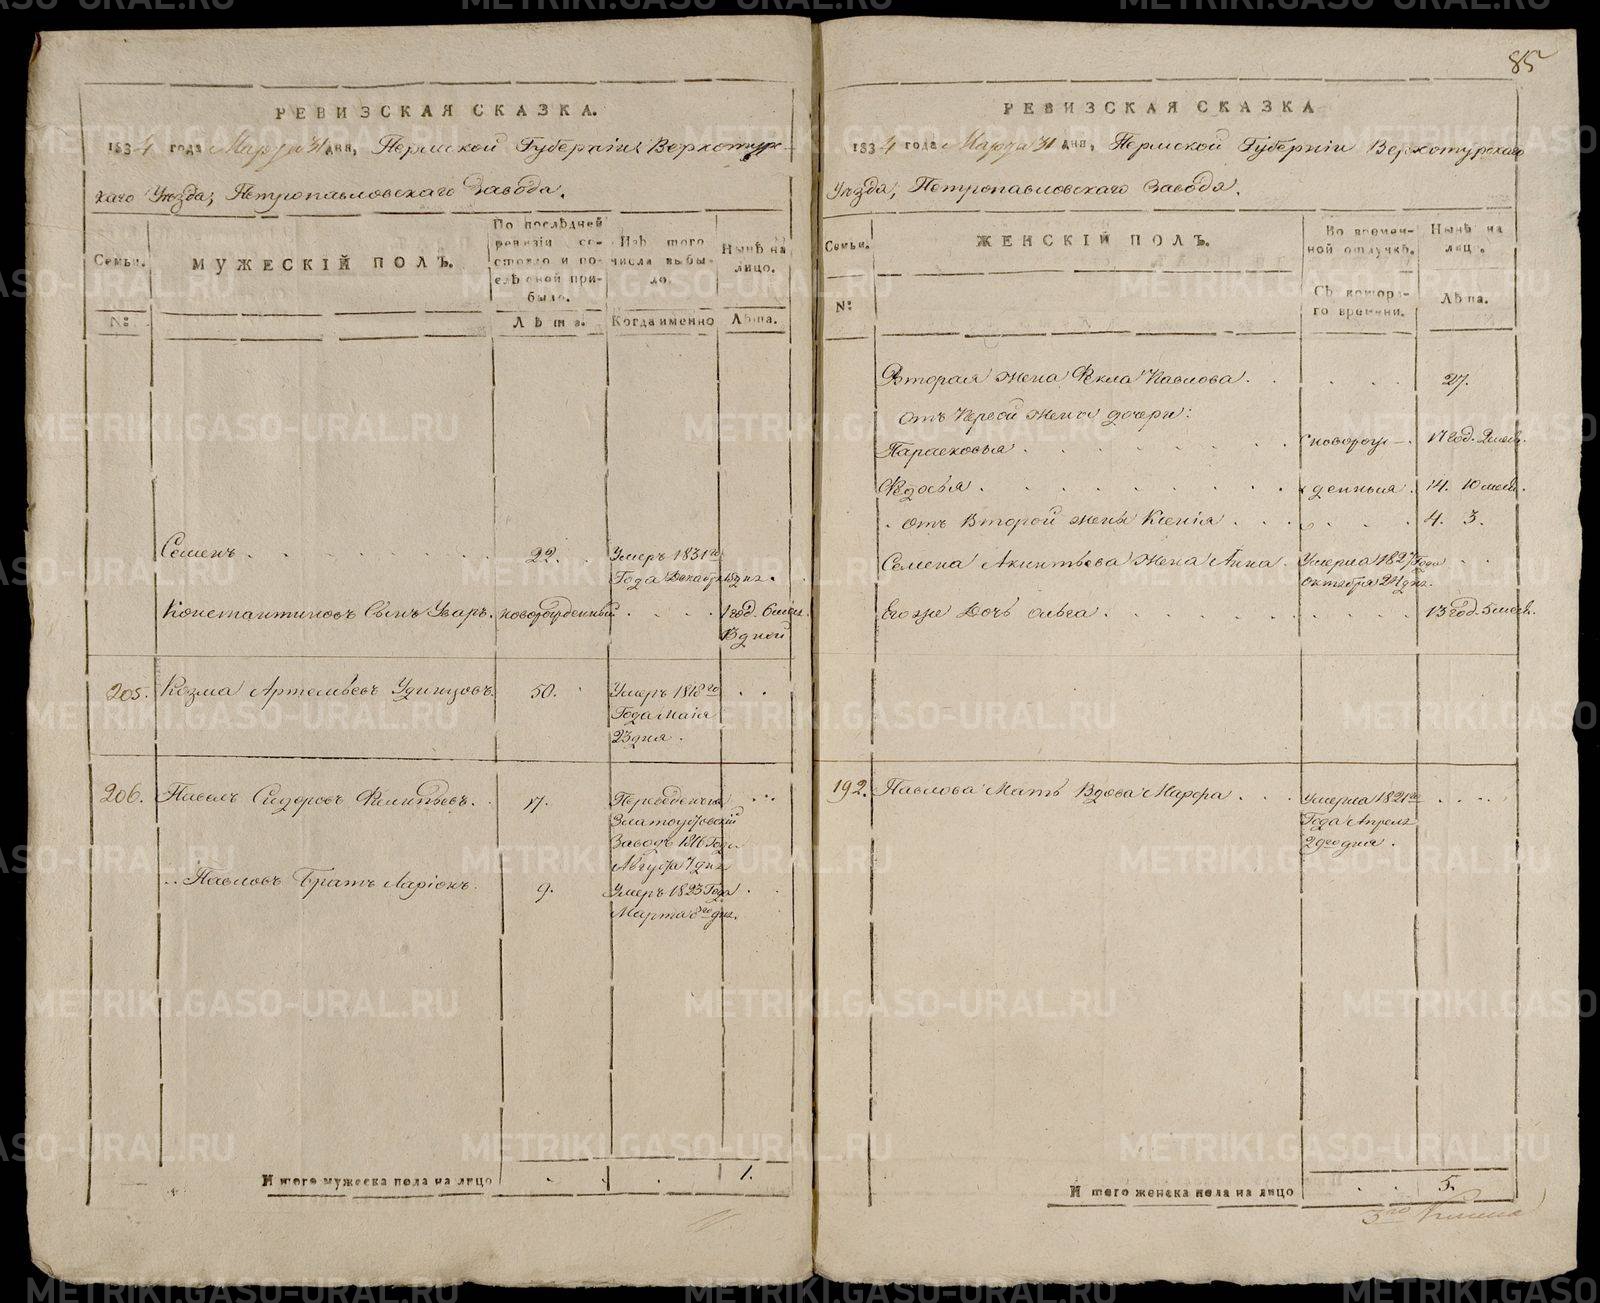 85
РЕВИЗСКАЯ СКАЗКА.
1834 года Марта 31 дня, Пермской Губерніи Верхотурс-
каго Уезда, Петропавловскаго Завода.
Семьи.
№:
МУЖЕСКІЙ ПОЛЪ.
По послѣдней
ревизіи со-
стояло и по-
слѣ оной при-
было.
Лѣта.
Изъ того
числа выбы-
ло.
Когда именно
Нынѣ на
лицо.
Лѣта.
Семенъ . . . . . . . 22. Умеръ 1831го
Года Декабря дня.
Константиновъ Сынъ Уваръ. новорожденный . . . . 1 год. 6 мѣся.
В одной
205. Козма Артемьевъ Удинцовъ. 50. Умеръ 1818го . .
Года Маія
23 дня.
206. Павелъ Сидоровъ 17. Переведенъ в . . .
Златоустовскій
Заводъ 1816 Года
Августа 7 дня
Павловъ Братъ Ларіонъ. 9. Умеръ 1823 Года . .
Марта 8го дня.
И того мужеска пола на лицо . . . 1.
РЕВИЗСКАЯ СКАЗКА
1834 года Марта 31 дня, Пермской Губерніи Верхотурскаго
Уезда, Петропавловскаго Завода.
Семьи.
№:
ЖЕНСКІЙ ПОЛЪ.
Во времен-
ной отлучкѣ.
Съ котора-
го времени.
Нынѣ на
лицо.
Лѣта.
Вторая жена Фекла Павлова. . . . . 27.
отъ Первой жены дочери:
Парасковья . . . . . . . . с новорож- . 17 год. 2 мѣся.
Федосья . . . . . . . . . денныя . 14. 10 мѣся.
отъ Второй жены Ксенія . . . . . . 4. 3.
Семена Акинтьева жена Анна. Умерла 1827 Года . .
октября 24 дня.
Его же Дочь Ольга . . . . . . . . . 13 год. 5 мѣся.
192. Павлова Мать Вдова Марфа . . . Умерла 1821го . . . .
Года Апреля
2го дня.
И того женска пола на лицо . . 5.
3го